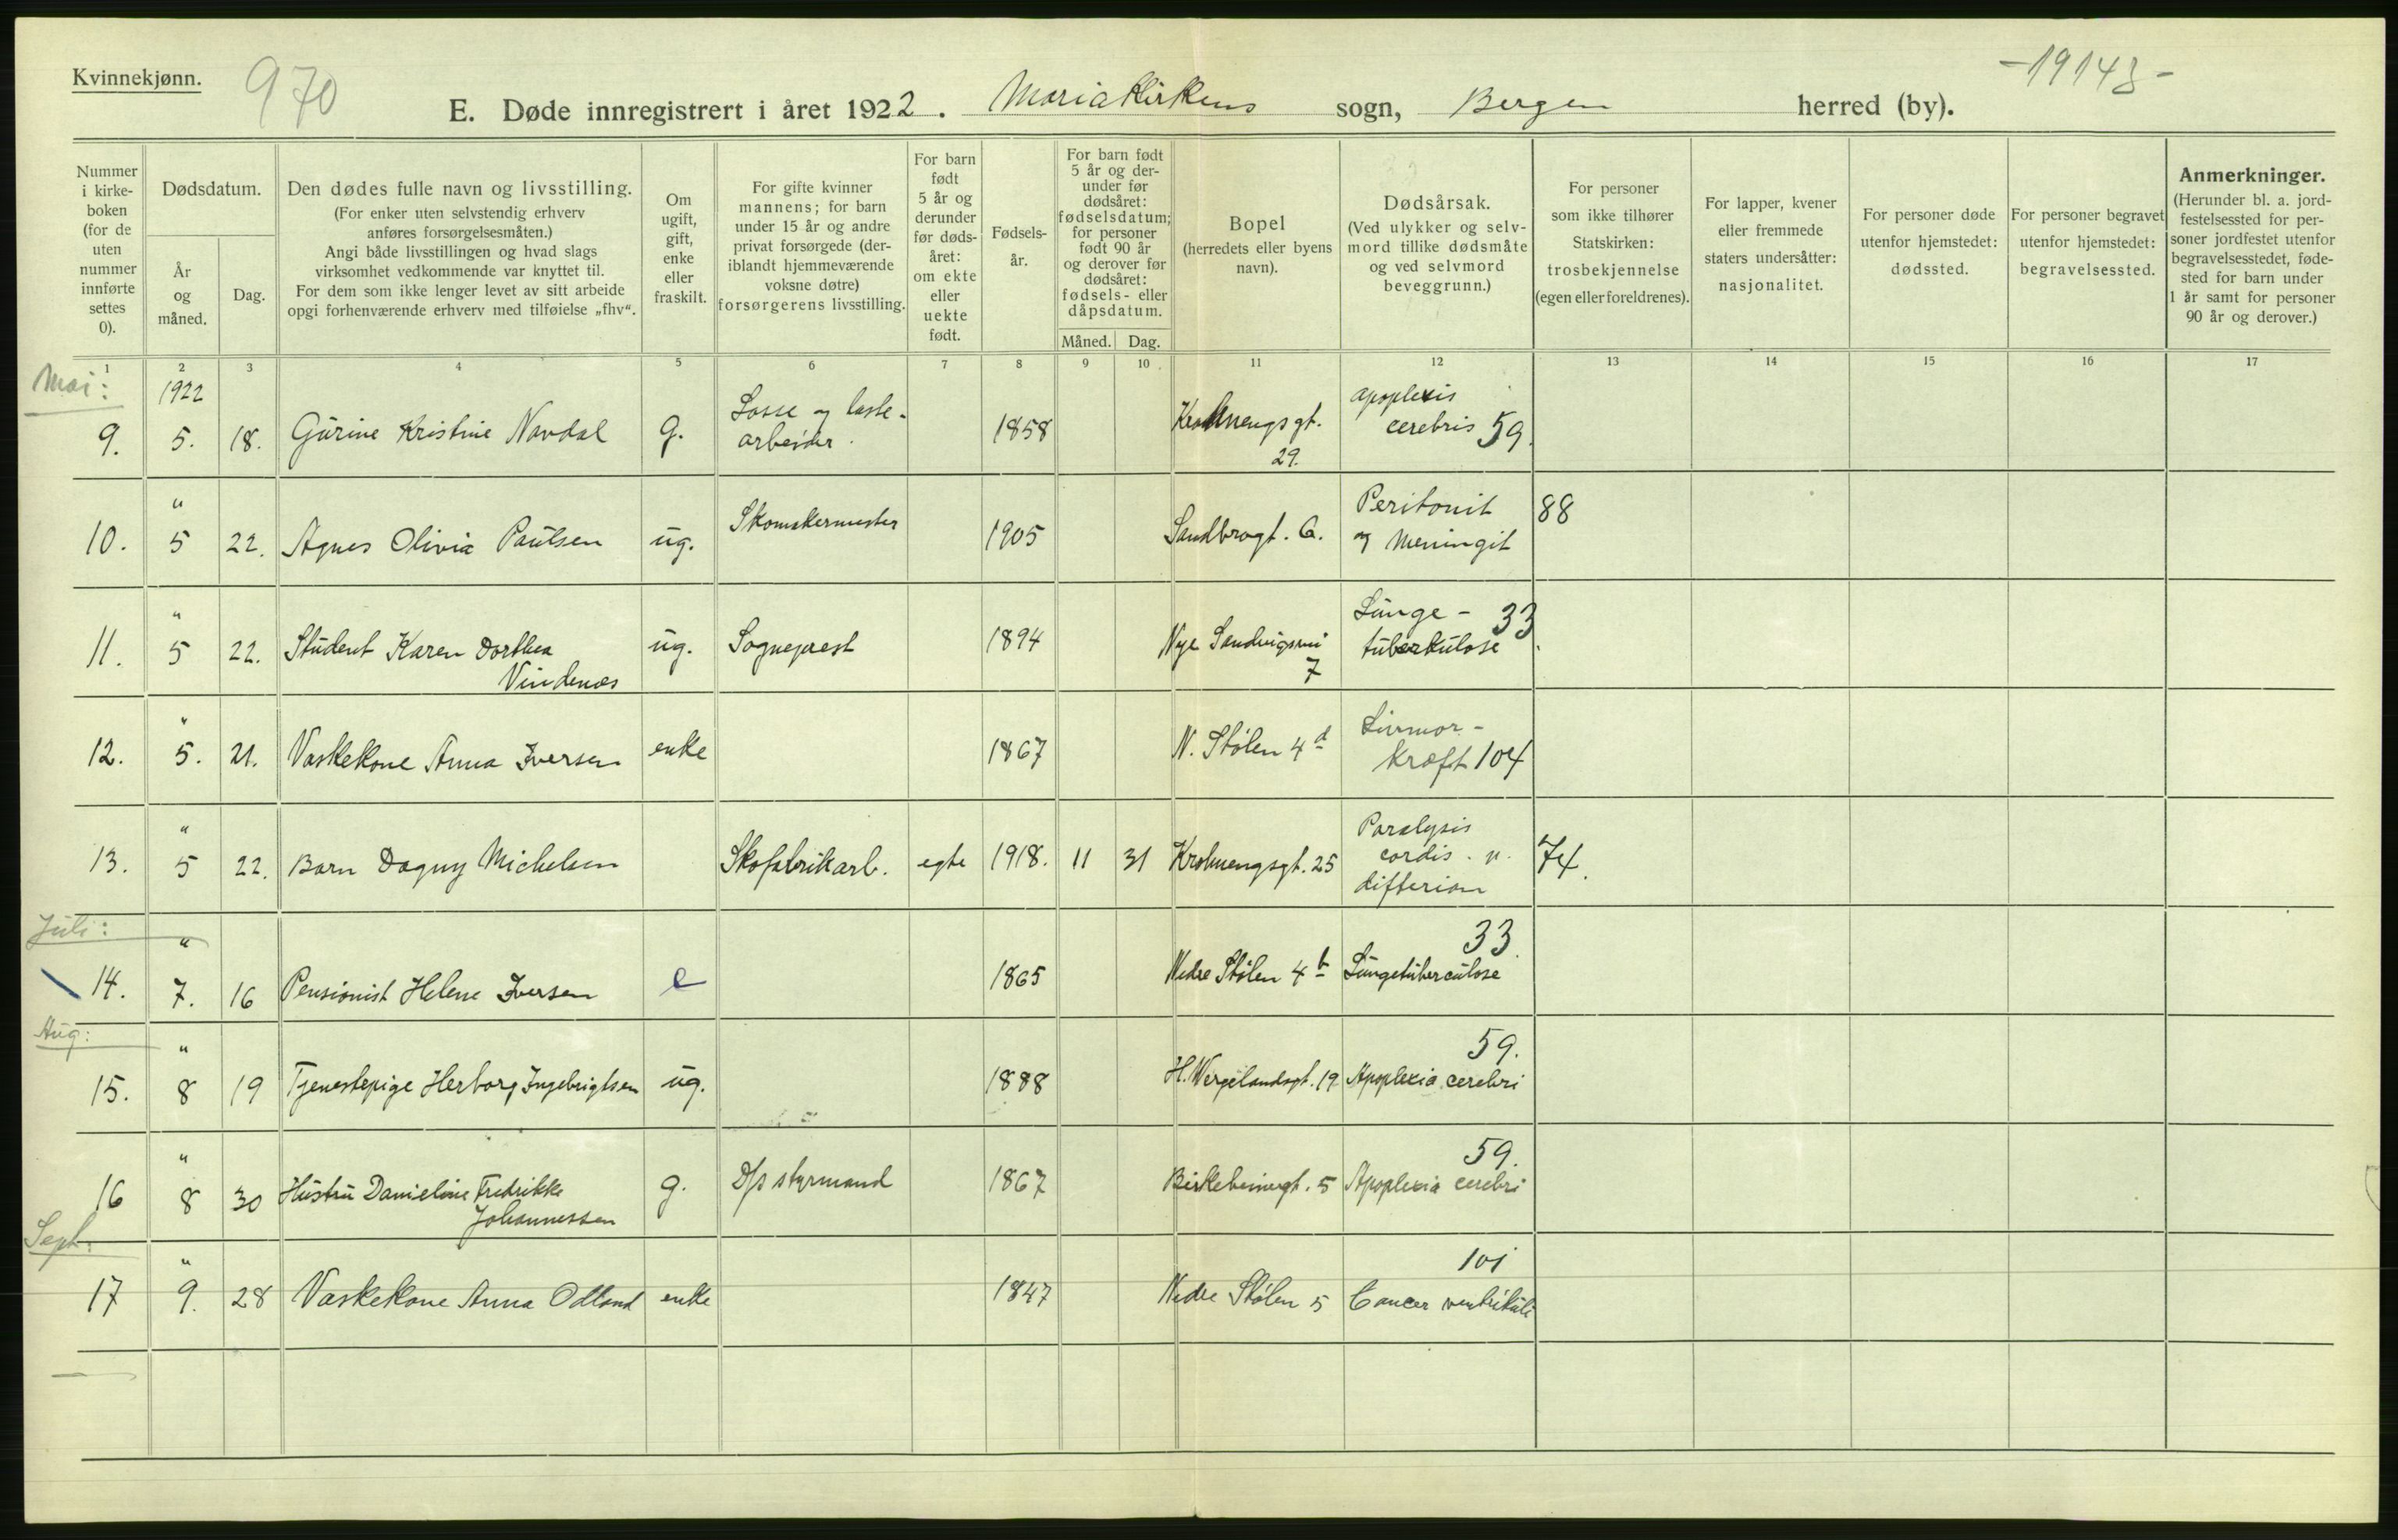 Kvinnekjønn.
970
-19148-
E. Døde innregistrert i året 1922. Mariakirkens sogn, Bergen herred (by).
Nummer i kirke-boken (for de uten nummer innførte settes 0).
Dødsdatum.
År og måned.
Dag.
Den dødes fulle navn og livsstilling.
(For enker uten selvstendig erhverv
anføres forsørgelsesmåten.)
Angi både livsstillingen og hvad slags
virksomhet vedkommende var knyttet til.
For dem som ikke lenger levet av sitt arbeide
opgi forhenværende erhverv med tilføielse „fhv“.
Om ugift, gift, enke eller fraskilt.
For gifte kvinner
mannens; for barn
under 15 år og andre
privat forsørgede (der-
iblandt hjemmeværende
voksne døtre)
forsørgerens livsstilling.
For barn født 5 år og derunder før døds-året: om ekte eller uekte født.
Fødsels-år.
For barn født
5 år og der-
under før
dødsåret:
fødselsdatum;
for personer
født 90 år
og derover før
dødsåret:
fødsels- eller
dåpsdatum.
Måned. Dag.
Bopel
(herredets eller byens
navn).
Dødsårsak.
(Ved ulykker og selv-
mord tillike dødsmåte
og ved selvmord
beveggrunn.)
For personer
som ikke tilhører
Statskirken:
trosbekjennelse
(egen eller foreldrenes).
For lapper, kvener
eller fremmede
staters undersåtter:
nasjonalitet.
For personer døde
utenfor hjemstedet:
dødssted.
For personer begravet
utenfor hjemstedet:
begravelsessted.
Anmerkninger.
(Herunder bl. a. jord-
festelsessted for per-
soner jordfestet utenfor
begravelsesstedet, føde-
sted for barn under
1 år samt for personer
90 år og derover.)
1 2 3 4 5 6 7 8 9 10 11 12 13 14 15 16 17
Mai:
1922
9. 5. 18. Gurine Kristine Navdal g. Losse og laste-
arbeider. 1858 Krohnengsgt.
29. apoplexis
cerebris 59.
"
10. 5 22. Agnes Olivia Paulsen ug. Skomakermester 1905 Sandbrogt. 6. Peritonit
og Meningit 88
"
11. 5 22. Student Karen Dorthea
Vindenæs ug. Sogneprest 1894 Nye Sandvigsvei
7 Lunge-
tuberkulose 33
"
12. 5. 21. Vaskekone Anna Iversen enke 1867 N. Stølen 4d Livmor-
kræft 104
"
13. 5 22. Barn Dagny Michelsen Skofabrikarb. egte 1918. 11 31 Krohnengsgt. 25 Paralysis
cordis. p.
difterian 74.
Juli:
"
14. 7. 16 Pensionist Helene Iversen e 1865 Nedre Stølen 4b 33
Lungetuberculose
Aug:
"
15. 8 19 Tjenestepige Herborg Ingebrigtsen ug. 1888 H. Wergelandsgt. 19 59.
Apoplexia cerebri
"
16 8 30 Hustru Danieline Fredrikke
Johannessen g. D/s styrmand 1867 Birkebeinergt. 5 59.
Apoplexia cerebri
Sept:
"
17 9. 28 Vaskekone Anna Odland enke 1847 Nedre Stølen 5 101
Cancer ventrikuli